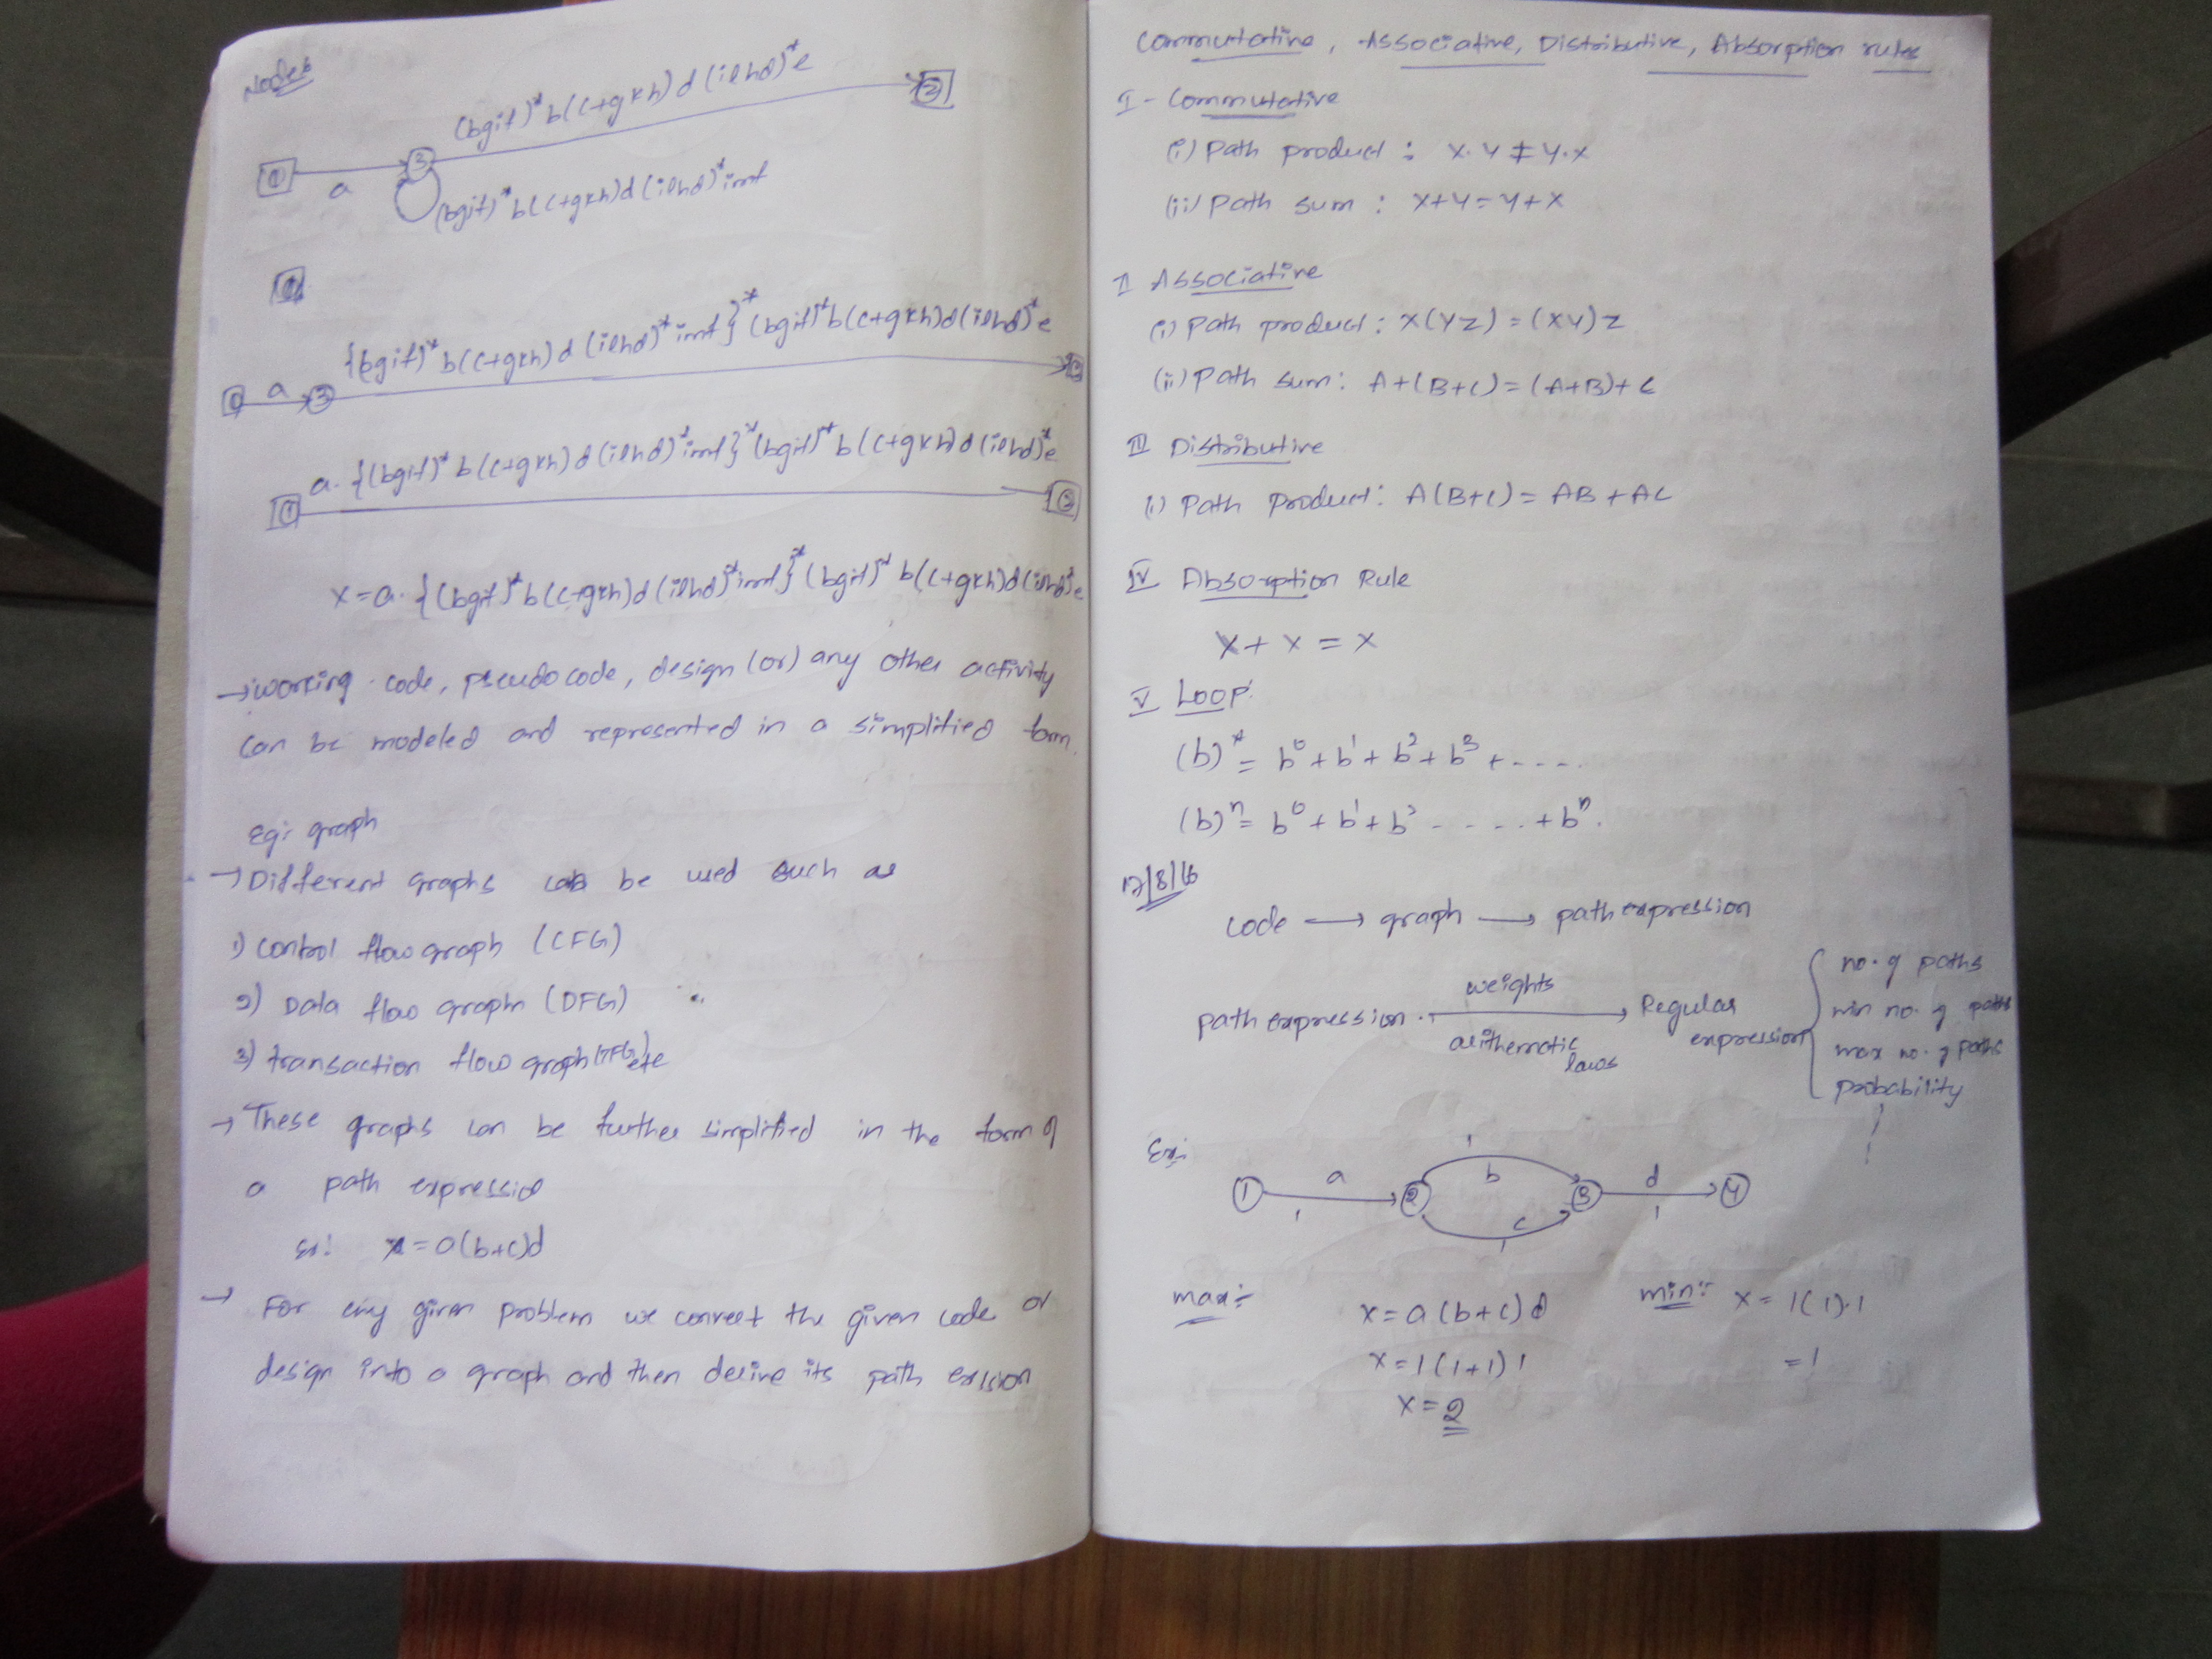 Node 6
1 a 3 (bgif)*b(c+gkh)d(ilhd)*e 2
(bgif)*b(c+gkh)d(ilhd)*imf
1 a 3 {(bgif)*b(c+gkh)d(ilhd)*imf}*(bgif)*b(c+gkh)d(ilhd)*e 2
1 a.{(bgif)*b(c+gkh)d(ilhd)*imf}*(bgif)*b(c+gkh)d(ilhd)*e 2
x = a.{(bgif)*b(c+gkh)d(ilhd)*imf}*(bgif)*b(c+gkh)d(ilhd)*e
→ working code, pseudo code, design (or) any other activity
can be modeled and represented in a simplified form.
eg: graph
→ Different graphs can be used such as
1) control flow graph (CFG)
2) Data flow graph (DFG)
3) transaction flow graph (TFG) etc
→ These graphs can be further simplified in the form of
a path expressio
x = a(b+c)d
→ For any given problem we convert the given code or
design into a graph and then derive its path
Commutative, Associative, Distributive, Absorption rules
I - Commutative
(i) Path product : x.y ≠ y.x
(ii) Path sum : x+y = y+x
II Associative
(i) Path product : x(yz) = (xy)z
(ii) Path sum : A+(B+C) = (A+B)+C
III Distributive
(i) Path product : A(B+C) = AB+AC
IV Absorption Rule
x + x = x
V Loop:
(b)* = b⁰ + b¹ + b² + b³ + ----
(b)ⁿ = b⁰ + b¹ + b² - - - .. + bⁿ.
17/8/16
Code → graph → path expression
path expression → Regular expression
weights
arithematic laws
no. of paths
min no. of paths
max no. of paths
probability
Ex:
1 a 2 b c 3 d 4
max:- x = a(b+c)d
x = 1(1+1)1
x = 2
min:- x = 1(1).1
= 1